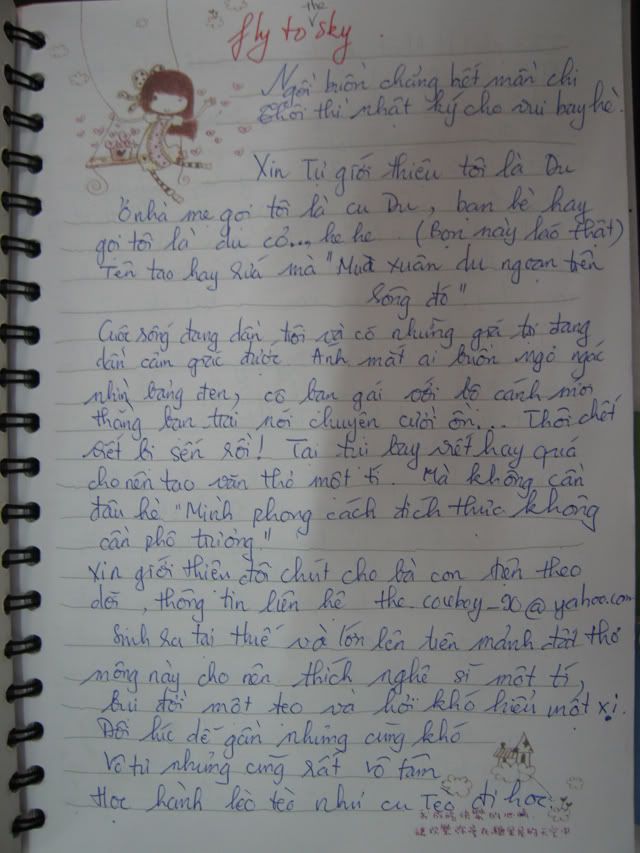 the
fly to sky.
Ngồi buồn chẳng biết mần chi
Thôi thì nhật ký cho vui bay hè.
Xin Tự giới thiệu tôi là Du
Ở nhà mẹ gọi tôi là cu Du, bạn bè hay
gọi tôi là du cỏ... he he (Bọn này láo thật)
Tên tao hay rứa mà "Mùa xuân du ngoạn trên
sông đó"
Cuộc sống đang dần trôi và có những giá trị đang
dần cảm giác được. Ánh mắt ai buồn ngơ ngác
nhìn bảng đen, cô bạn gái với bộ cánh mới
thằng bạn trai nói chuyện cười ồn... Thôi chết
viết bị sến rồi! Tại tụi bay viết hay quá
cho nên tao văn thơ một tí. Mà không cần
đâu hè "Mình phong cách đích thực không
cần phô trương."
Xin giới thiệu đôi chút cho bà con tiện theo
dõi, thông tin liên hệ the_cowboy_20@yahoo.com
Sinh ra tại Huế và lớn lên trên mảnh đất thơ
mộng này cho nên thích nghệ sĩ một tí,
bụi đời một tẹo và hơi khó hiểu một xị.
Đôi lúc dễ gần nhưng cũng khó
Vô tư nhưng cũng rất vô tâm
Học hành lèo tèo như cu Tèo đi học